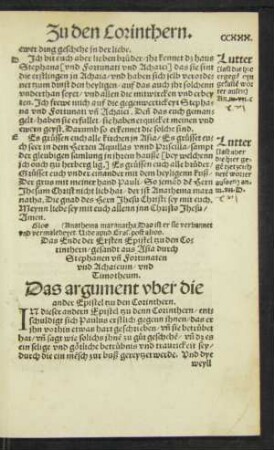 Zu den Corinthern.
CCXXX.
ewer ding geschehe in der liebe.
Ich bit euch aber lieben brüder: ihr kennet dz hauß
Stephana [vnd Fortunati vnd Achaici] das sie sint
die erstlingen in Achaia / vnd haben sich selb verord
net zum dynst den heyligen / auf das auch ihr solchenn
vnderthan seyet / vnd allen die mitwircken vnd erbey
ten. Ich frewe mich auf die gegenwertickeyt Stepha
na vnd Fortunati vnd Achaici. Den das euch gemangelt
haben sie erfullet. sie haben erquicket meinen vnd
ewern geyst. Darumb so erkennet die solche sind.
Es grüssen euch alle kirchen jn Asia / Es grüssett eu
ch seer in dem Herren Aquillas vnnd Priscilla / sampt
der gleubigen samlung in jhrem hause [bey welchenn
ich auch zu herberg lig.] Es grüssen euch alle brüder /
Grüsset euch vnder einander mit dem heyligenn kuß
Der grus mit meiner hand Pauli. So jemād dē Herrē
Jhesum Christ nicht lieb hat / der ist Anathema mara
natha. Die gnad des Hern Jhesu Christi sey mit euch.
Meynn liebe sey mit euch allenn jnn Christo Jhesu /
Amen.
Das Ende der Ersten Epistel zu den Co
rinthern / gesandt aus Asia durch
Stephanen vñ Fortunaten
vnd Achaicum / vnd
Timotheum.
Das argument vber die
ander Epistel zu den Corinthern.
IN dieser andern Epistel zu denn Corinthern / ents
schuldigt sich Paulus erstlich gegen ihnen / das er
ihn vorhin etwas hart geschrieben / vñ sie betrübet
hat / vñ sagt wie solichs jhnē zu güt geschehē / vñ dz es
ein selige vnd götliche betrübnus vnd traurickeit sey /
durch die ein mēsch zur buß gereytzet werde. Vnd dye
weyll
Lutter
Lutter